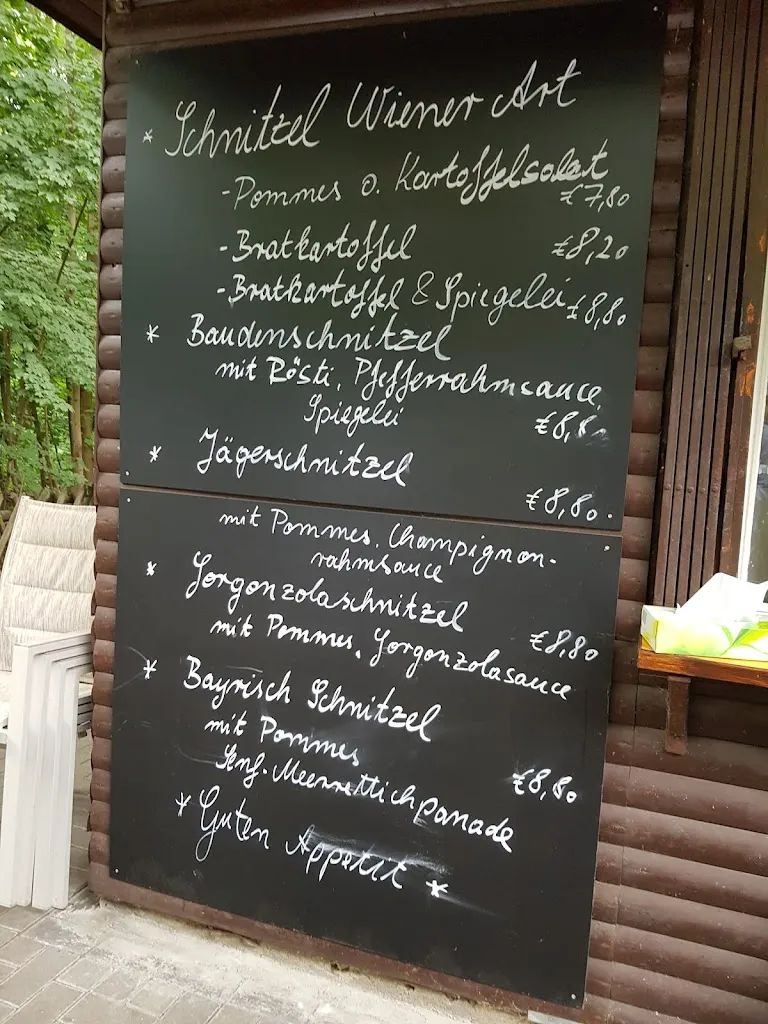 * Schnitzel Wiener Art
- Pommes o. Kartoffelsalat
€7,80
- Bratkartoffel €8,20
- Bratkartoffel & Spiegelei €8,80
* Baudenschnitzel
mit Rösti, Pfefferrahmsauce,
Spiegelei €8,80
* Jägerschnitzel
€8,80
mit Pommes, Champignon-
rahmsauce
* Gorgonzolaschnitzel
€8,80
mit Pommes, Gorgonzolasauce
* Bayrisch Schnitzel
mit Pommes
€8,80
Senf-Meerrettichpanade
* Guten Appetit *